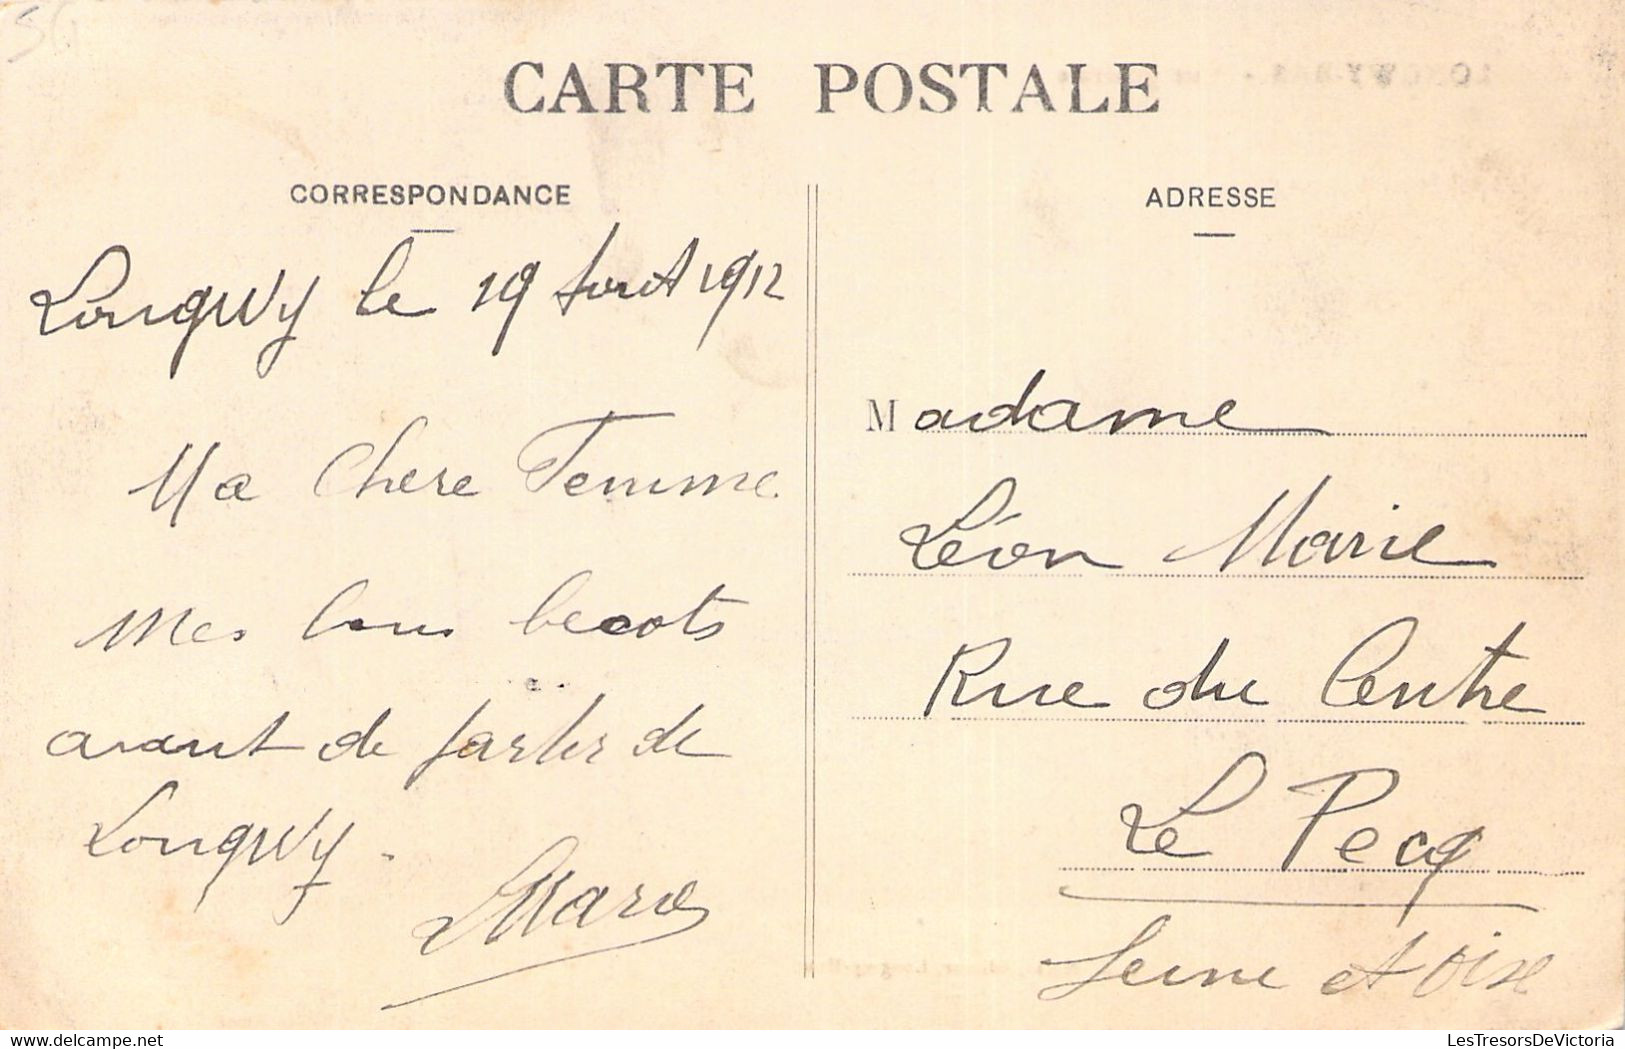 CARTE POSTALE
CORRESPONDANCE
Longwy le 19 Aout 1912
Ma Chere Femme
mes bons becots
avant de partir de
Longwy.
LMarie
ADRESSE
Madame
Léon Marie
Rue du Centre
Le Pecq
Seine et Oise
LesTresorsDeVictoria